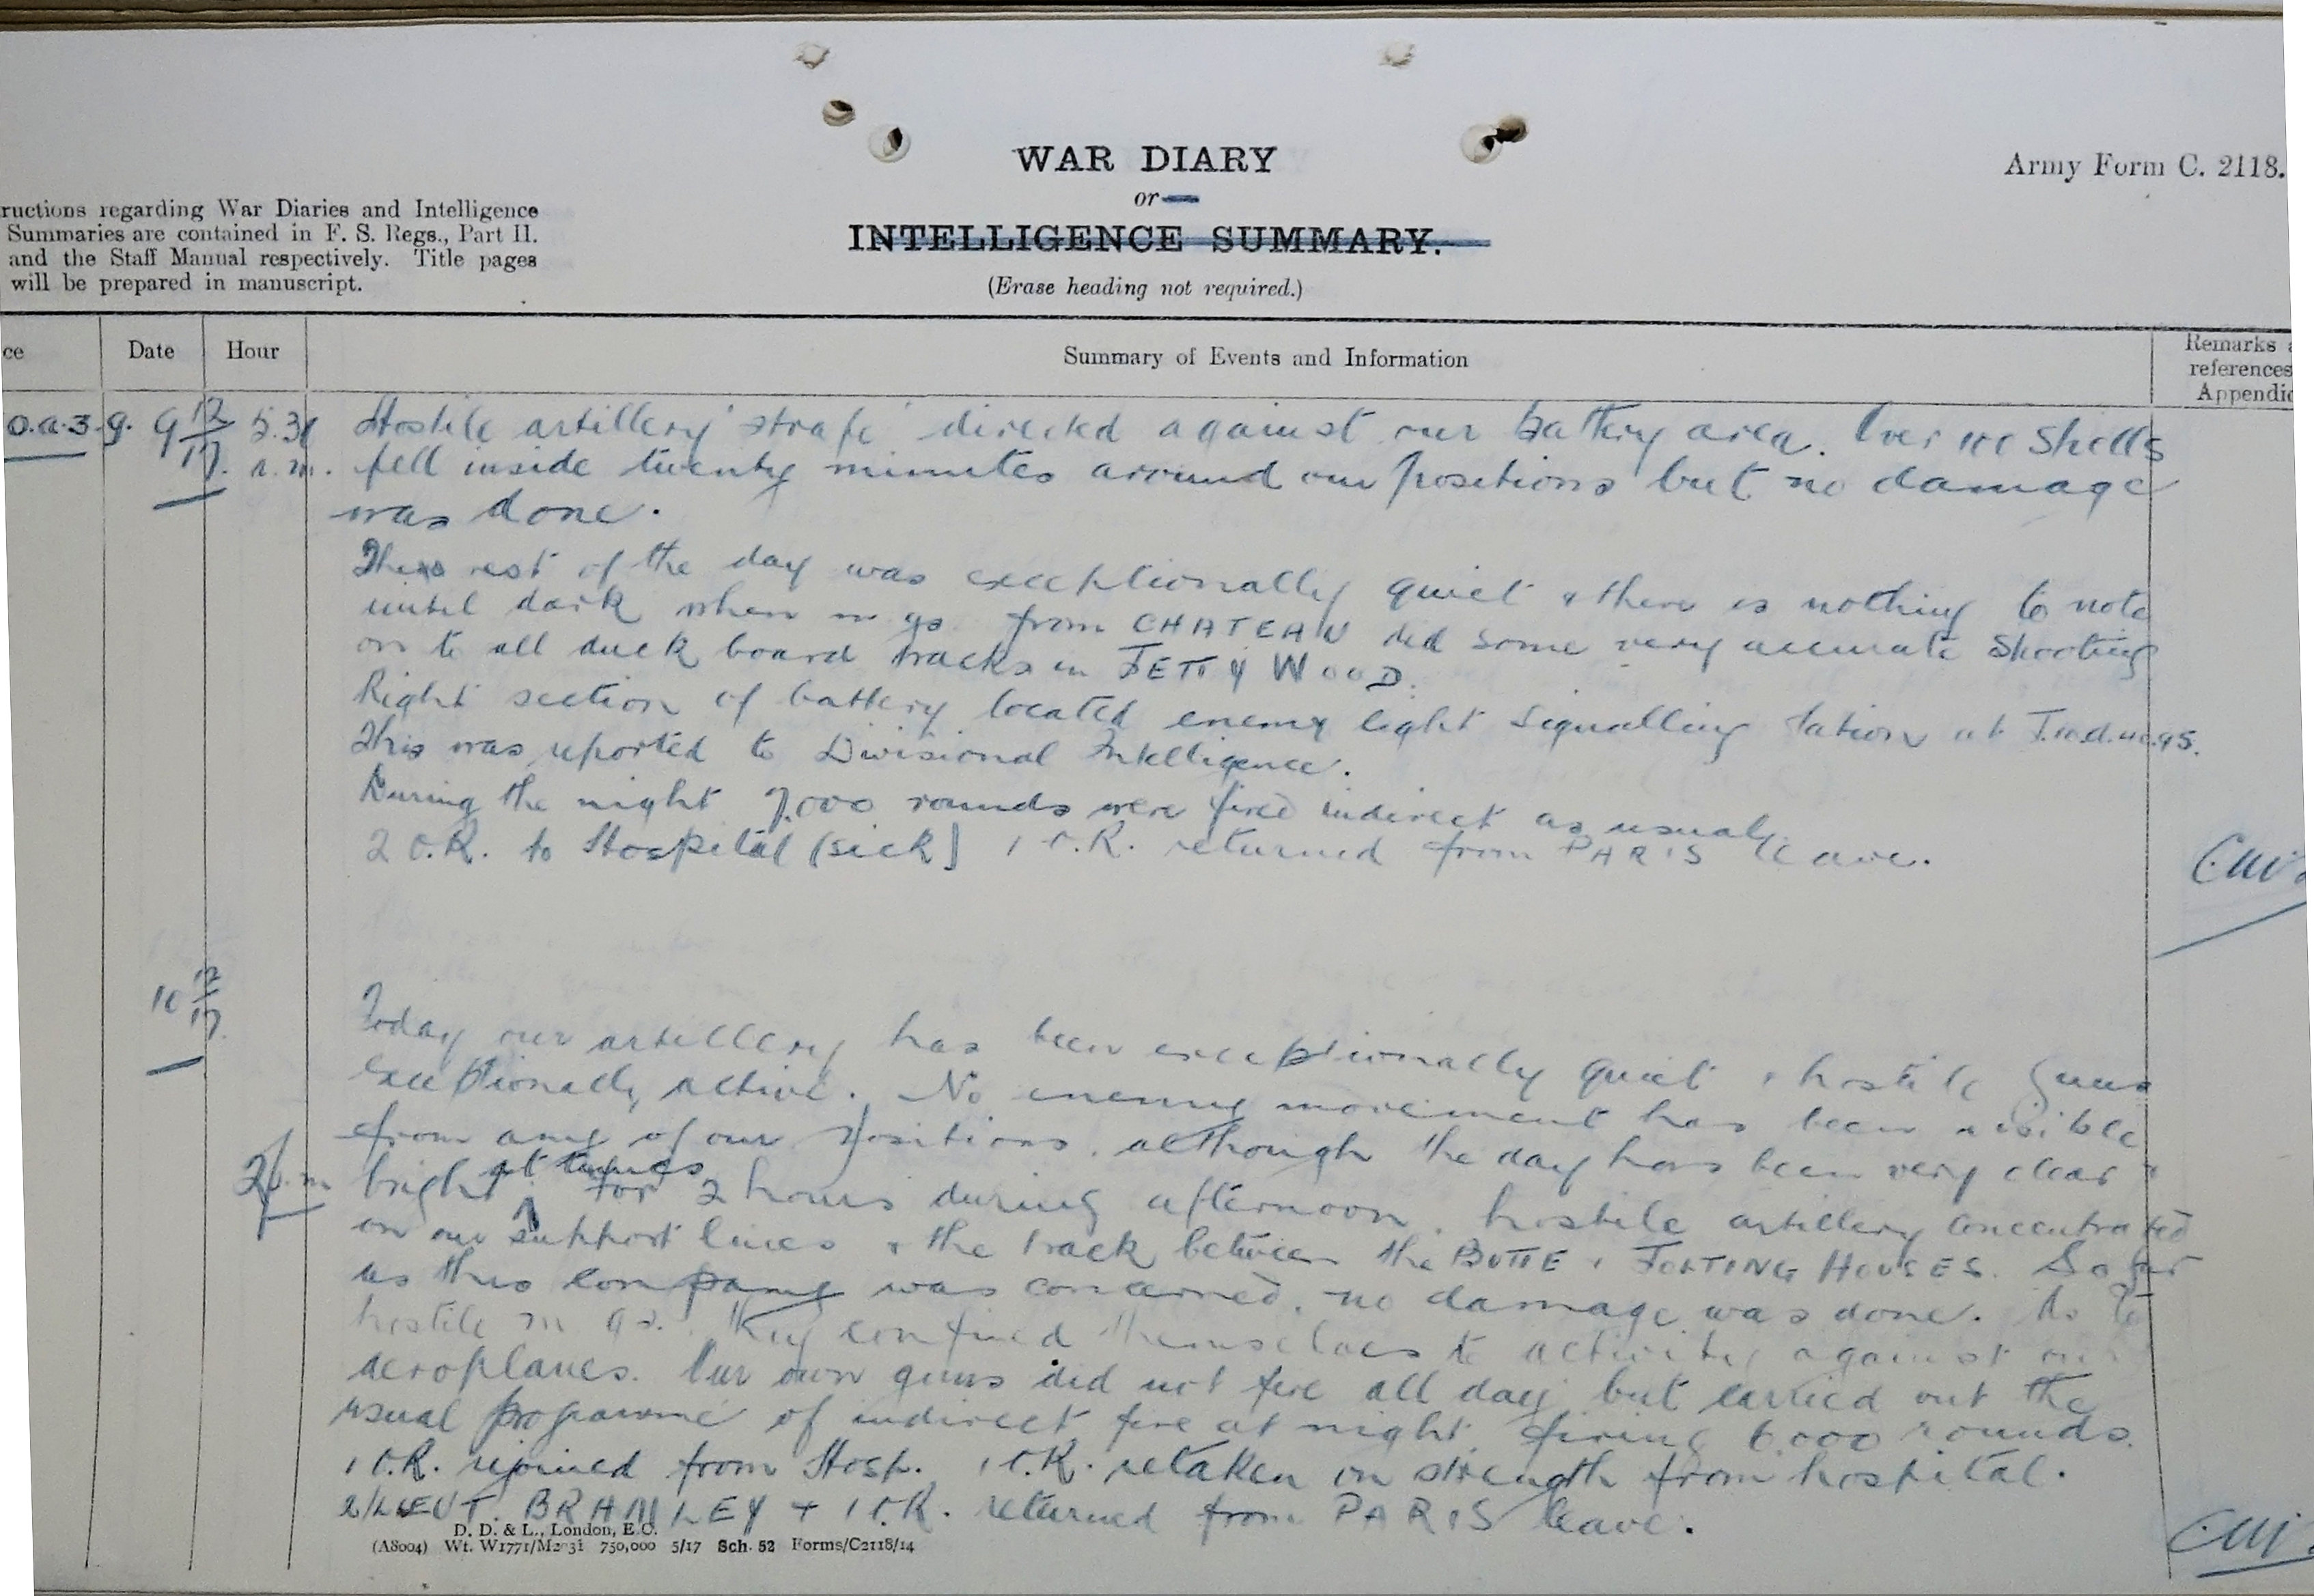 WAR DIARY
or
INTELLIGENCE SUMMARY.
(Erase heading not required.)
Army Form C. 2118.
ructions regarding War Diaries and Intelligence
Summaries are contained in F. S. Regs., Part II.
and the Staff Manual respectively. Title pages
will be prepared in manuscript.
ce Date Hour Summary of Events and Information Remarks
references
Appendic
0.a.3.9. 9 12/17. 5.30 Hostile artillery "strafe" directed against our battery area. Over 100 shells
a.m. fell inside twenty minutes around our positions but no damage
was done.
The rest of the day was exceptionally quiet & there is nothing to note
until dark when m gs from CHATEAU did some very accurate shooting
on to all duck board tracks in JETTY WOOD.
Right section of battery located enemy light signalling station at
This was reported to Divisional Intelligence.
During the night 7,000 rounds were fired indirect as usual.
2 O.R. to Hospital (sick) 1 O.R. returned from PARIS leave.
10 12/17.
Today our artillery has been exceptionally quiet & hostile guns
exceptionally active. No enemy movement has been visible
from any of our positions, although the day has been very clear &
2 p.m bright at times. For 2 hours during afternoon, hostile artillery concentrated
on our support lines & the track between the BUTTE & HOUSES. So far
as this company was concerned, no damage was done. As to
hostile m gs. they confined themselves to activity against our
aeroplanes. Our own guns did not fire all day but carried out the
usual programme of indirect fire at night, firing 6,000 rounds.
1 O.R. rejoined from Hosp. 1 O.R. retaken on strength from hospital.
2/LIEUT. BRAMLEY + 1 O.R. returned from PARIS leave.
D. D. & L., London, E.C.
(A8004) Wt. W1771/M2031 750,000 5/17 Sch. 52 Forms/C2118/14